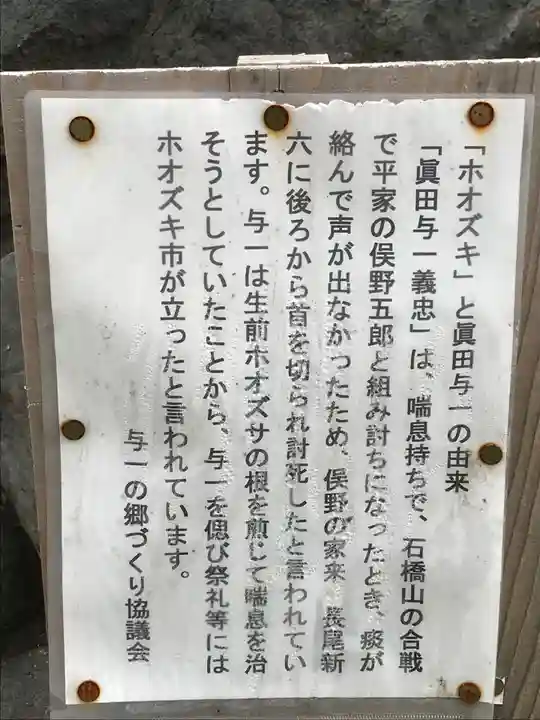 「ホオズキ」と眞田与一の由来
「眞田与一義忠」は、喘息持ちで、石橋山の合戦
で平家の俣野五郎と組み討ちになったとき、痰が
絡んで声が出なかったため、俣野の家来、長尾新
六に後ろから首を切られ討死したと言われてい
ます。与一は生前ホオズサの根を煎じて喘息を治
そうとしていたことから、与一を偲び祭礼等には
ホオズキ市が立ったと言われています。
与一の郷づくり協議会